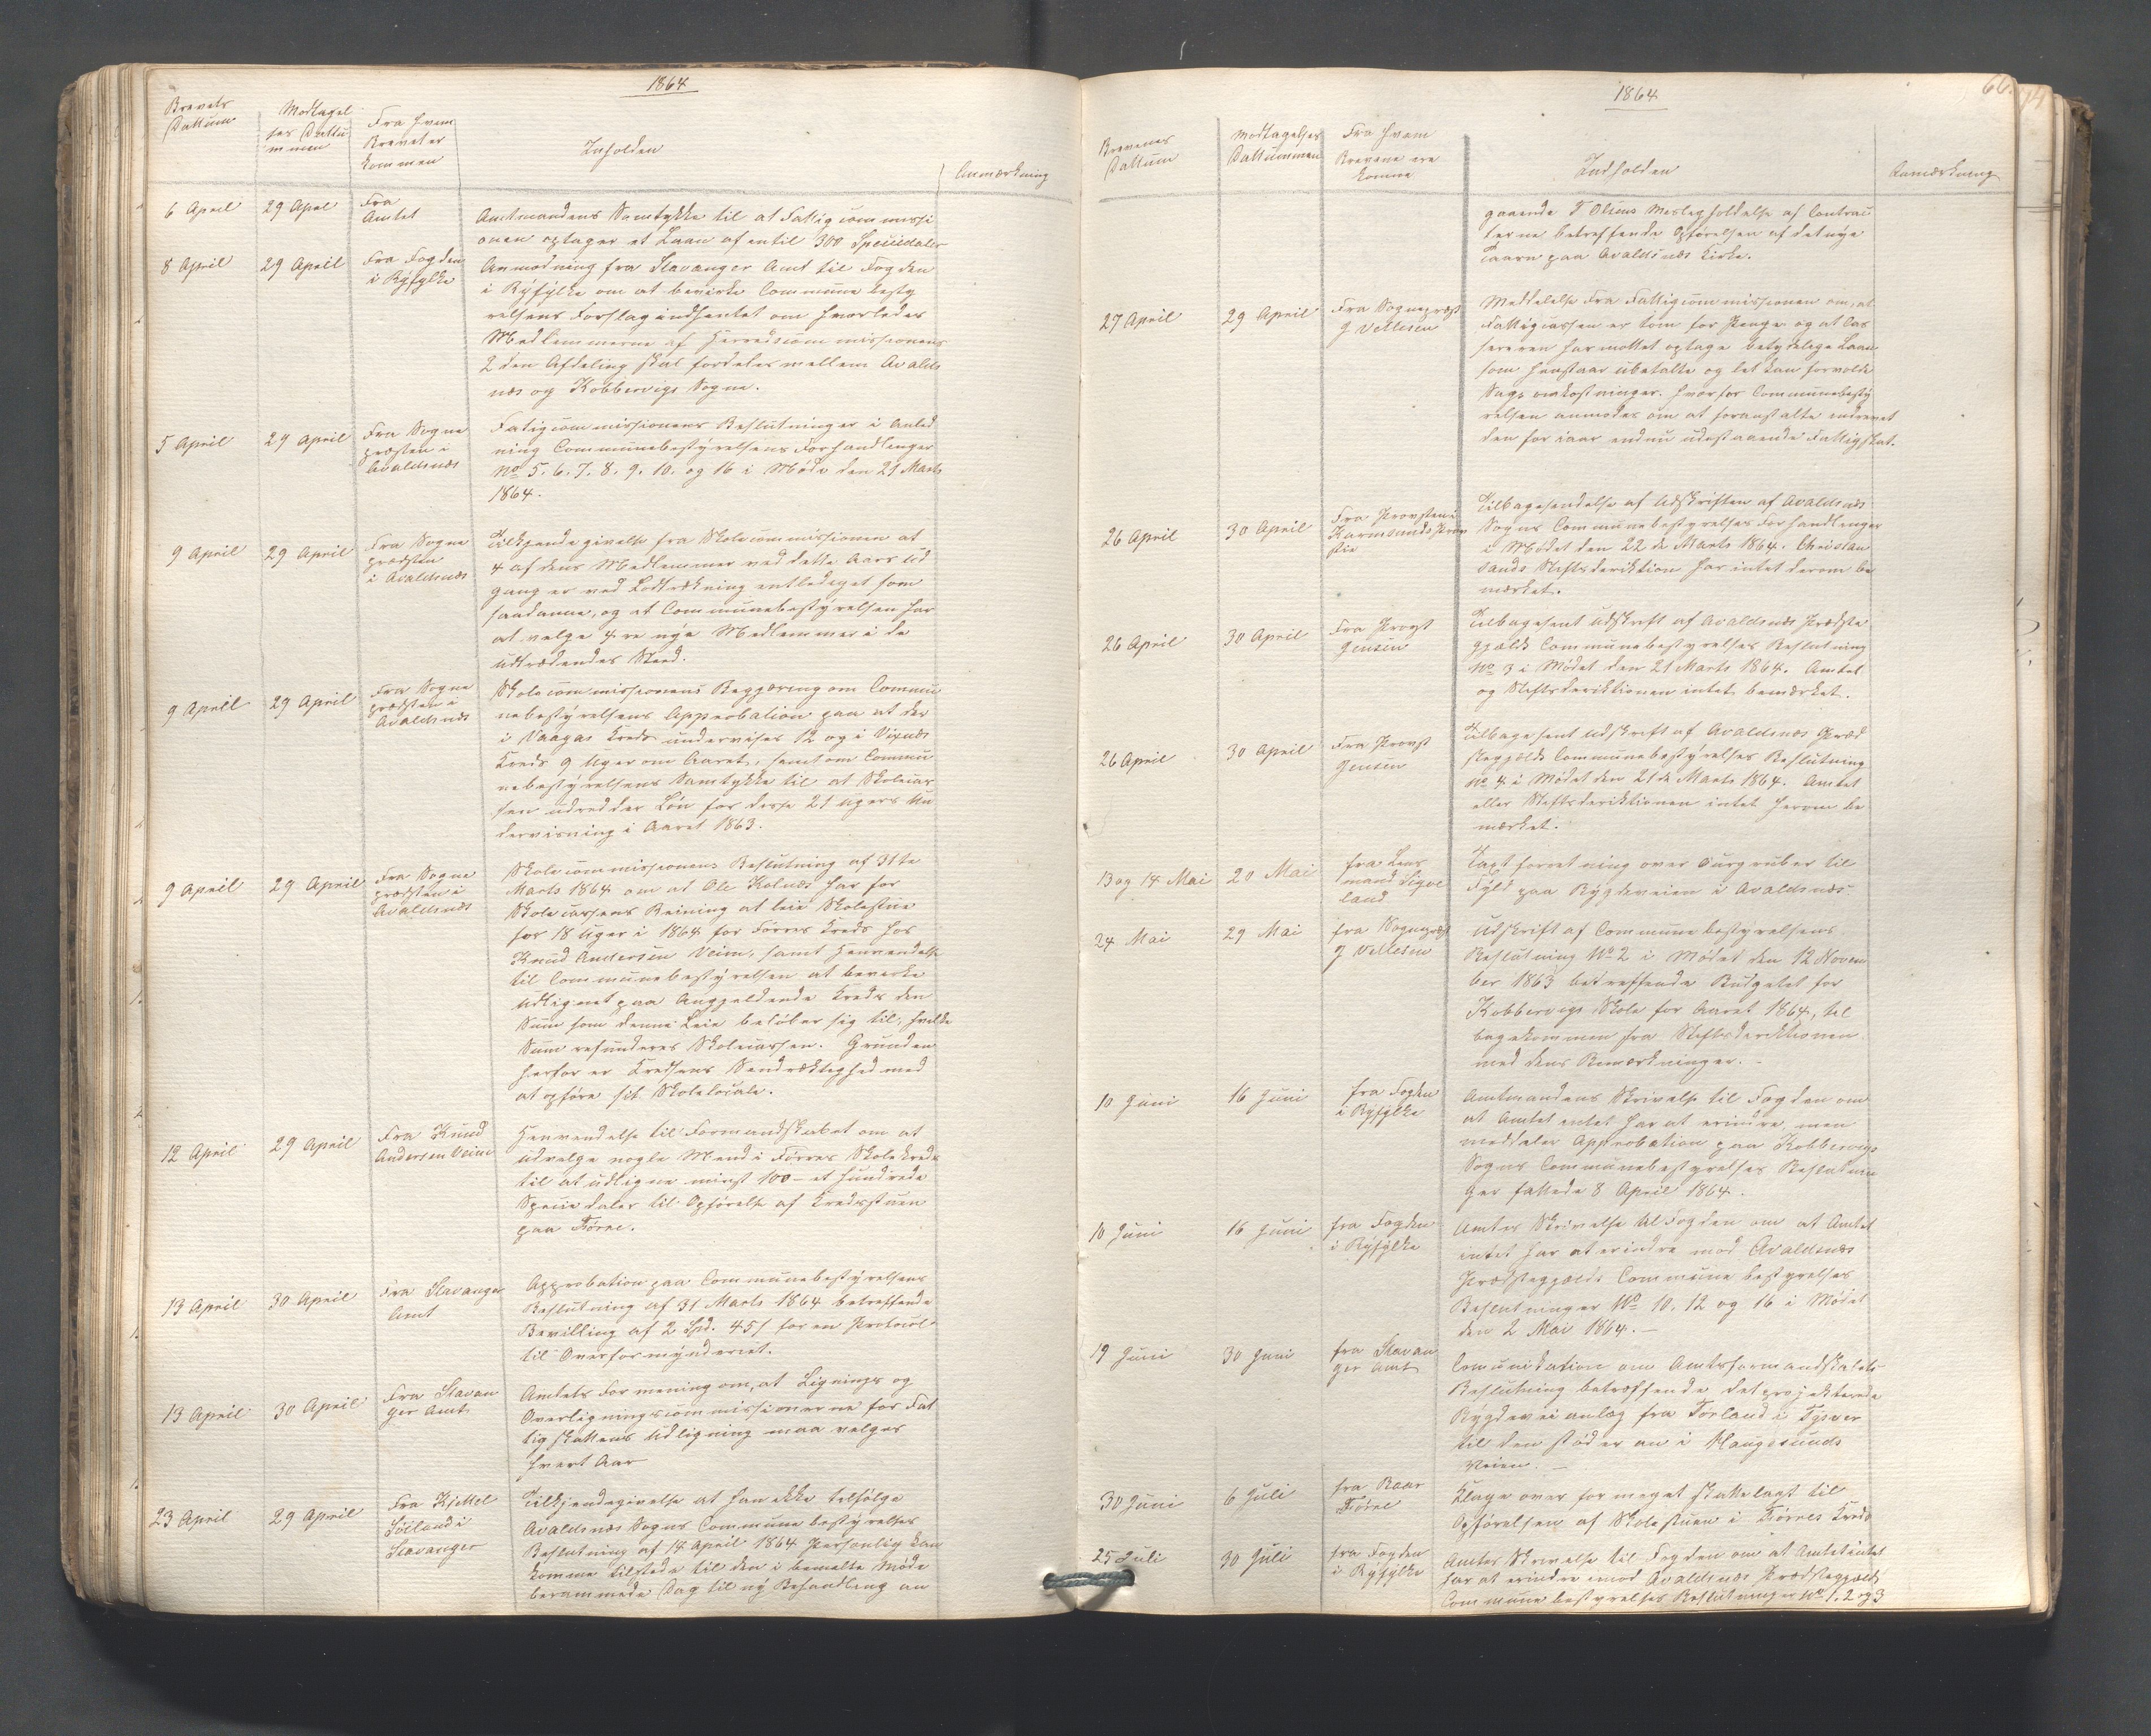 1864
Brevets Dattum
Modtagel ses Dattu mmen
Fra hvem Brevet er kommen
Inholden
Anmærkning
6 April
29 Apel
Fra Amtet
Amtmandens Samtykke til at Fattigcommissi
onen optager et Laan af entil 300 Speciedaler
8 April
29 April
Fra Fogden i Ryfylke
Anmodning fra Stavanger Amt til Fogden
i Ryfylke om at bevirke Commune besty
relsens Forslag indhentet om hvorledes
Medlimmerne af Herredscommissionens
2den Afdeling skal fordeles mellem Avalds
nes og Kobbervigs Sogne.
5 April
29 April
Fra Sogne præsten i Avaldsnæs
Fatigcommissionens Beslutninger i Anled
ning Communebestyrelsens Forhandlinger
No 5. 6. 7. 8. 9. 10. og 16 i Møde den 21 Marts
1864.
9 April
29 April
Fra Sogne prædsten i Avaldsnæs
Tilkjendegivelse fra Skolecommissionen at
4 af dens Medlemmer ved dette Aars Ud
gang er ved Lodtrækning entlediget som
saadanne, og at Communebestyrelsen har
at velge 4re nye Medlemmer i de
udtrædendes Sted.
9 April
29 April
Fra Sogne prædsten i Avaldsnæs
Skolecommissionens Begjæring om Commu
nebestyrelsens Approbation paa at der
i Vaagas Kreds undervises 12 og i Vixnæs
Kreds 9 Uger om Aaret, samt om Commu
nebestyrelsens Samtykke til at Skolecas
sen udredder Løn for disse 21 Ugers Un
dervisning i Aaret 1863.
9 April
29 April
Fra Sogne prædsten i Avaldsnæs
Skolecommissionens Beslutning af 31te
Marts 1864 om at Ole Kolnæs har for
Skolecassens Reining at leie Skolestue
for 18 Uger i 1864 for Førres Kreds hos
Knud Andersen Veim, samt Henvendelse
til Communebestyrelsen at bevirke
udlignet paa Angjeldende Kreds den
Sum som denne Leie beløber sig til, hvilke
Sum refunderes Skolecassen. Grunden
herfor er Kredsens Sendrægtighed med
at opføre sit Skolelocale.
12 April
29 April
Fra Knud Andersen Veim
Henvendelse til Formandskabet om at
udvelge nogle Mend i Førres Skolekreds
til at udligne minst 100 – et hundrede
Speciedaler til Opførelse af Kredsstuen
paa Førre.
13 April
30 April
Fra Stavanger Amt
Approbation paa Communebestyrelsens
Beslutning af 31 Marts 1864 betreffende
Bevilling af 2 Spd. 45 s for en Protocol
til Overformynderiet.
13 April
30 April
Fra Stavan ger Amt
Amtets Formening om, at Lignings og
Overligningscommissionerne for Fat
tigskattens Udligning maa velges
hvert Aar
23 April
29 April
Fra Kjettel Søiland i Stavanger
Tilkjendegivelse at han ikke telfølge
Avaldsnæs Sogns Communebestyrelses
Beslutning af 14 April 1864 Personlig kan
komme tilstede til den i bemelte Møde
berammede Dag til ny Behandling an
1864
66.
Brevenes Dattum
Modtagelses Dattummen
Fra hvem Brevene ere komne
Indholden
Anmærkning
gaaende T Olsens Misligholdelse af Contrac
terne betreffende Opførelsen af det nye
Taarn paa Avaldsnæs Kirke.
27 April
29 April
Fra Sognepræst J Vellesen
Meddelelse Fra Fattigcommissionen om, at
Fattigcassen er tom for Penge og at Cas
sereren har mottet optage betydelige Laan
som henstaar ubetalte og let kan forvolde
Sags omkostninger. Hvorfor Communebesty
relsen anmodes om at foranstalte inddrevet
den for iaar endnu udestaaende Fattigskat.
26 April
30 April
Fra Provsten i Karmsunds Prov stie
Tilbagesendelse af Udskriften af Avaldsnæs
Sogns Communebestyrelses Forhandlinger
i Mødet den 22de Marts 1864. Christian
sands Stiftsderiktion har intet derom be
mærket.
26 April
30 April
Fra Provst Jensen
Tilbagesent Udskrift af Avaldsnæs Prædste
gjælds Communebestyrelses Beslutning
No 3 i Mødet den 21 Marts 1864. Amtet
og Stiftsderiktionen intet bemærket.
26 April
30 April
Fra Provst Jensen
Tilbagesent Udskrift af Avaldsnæs Præd
stegjælds Communebestyrelses Beslutning
No 4 i Mødet den 21de Marts 1864. Amtet
eller Stiftsderiktionen intet herom be
mærket.
13 og 14 Mai
20 Mai
fra Lens mand Sigve land
Taxtforretning over Aurgruber til
Fyld paa Bygdeveien i Avaldsnæs
24 Mai
29 Mai
fra Sognepræst J Vellesen
Udskrift af Communebestyrelsens
Beslutning No 2 i Mødet den 12 Novem
ber 1863 betreffende Budgetet for
Kobbervigs Skole for Aaret 1864, tel
bagekommen fra Stiftsderiktionen
med dens Bemærkninger. –
10 Juni
16 Juni
fra Fogden i Ryfylke
Amtmandens Skrivelse til Fogden om
at Amtet intet har at erindre, men
meddeler Approbation paa Kobbervigs
Sogns Communebestyrelses Beslutnin
ger fattede 8 April 1864.
10 Juni
16 Juni
fra Fogden i Ryfylke
Amtes Skrivelse til Fogden om at Amtet
intet har at erindre mod Avaldsnæs
Prædstegjælds Commune bestyrelses
Beslutninger No 10. 12 og 16 i Mødet
den 2 Mai 1864. –
19 Juni
30 Juni
fra Stavan ger Amt
Comunikation om Amtsformandskabets
Beslutning betreffende det projekterede
Bygdeveianlæg fra Førland i Tysver
til den støder an i Haugesunds
Veien. –
30 Juni
6 Juli
fra Roar Førre
Klage over for meget skattelagt til
Opførelsen af Skolestuen i Førres Kreds
25 Juli
30 Juli
fra Fogden i Ryfylke
Amtes Skrivelse til Fogden om at Amtet intet
har at erindre imod Avaldsnæs Prædstegjælds
Communebestyrelses Beslutninger No 1. 2 og 3